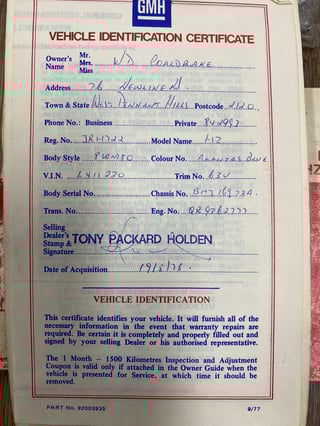 GMH
VEHICLE IDENTIFICATION CERTIFICATE
Owner's Name Mr. Mrs. Miss WD COALDRAKE
Address 76 NEWLINE Rd
Town & State West Pennant Hills Postcode 2120.
Phone No.: Business Private 842993
Reg. No. Model Name HZ
Body Style 8WM80 Colour No.
V.I.N. L411270 Trim No. 63V
Body Serial No. Chassis No.
Trans. No. Eng. No.
Selling
Dealer's
Stamp & TONY PACKARD HOLDEN
Signature
Date of Acquisition 19/5/78
VEHICLE IDENTIFICATION
This certificate identifies your vehicle. It will furnish all of the
necessary information in the event that warranty repairs are
required. Be certain it is completely and properly filled out and
signed by your selling Dealer or his authorised representative.
The 1 Month – 1500 Kilometres Inspection and Adjustment
Coupon is valid only if attached in the Owner Guide when the
vehicle is presented for Service, at which time it should be
removed.
PART No. 92003935 9/77